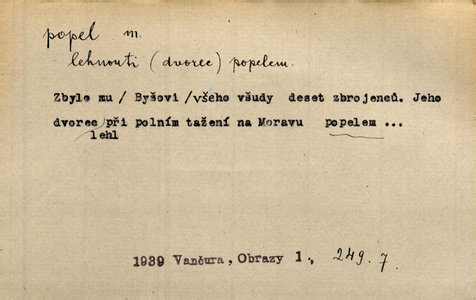 popel m.
lehnouti (dvorec) popelem.
Zbylo mu / Byšovi / všeho všudy deset zbrojenců. Jeho
dvorec při polním tažení na Moravu popelem ...
lehl
1939 Vančura, Obrazy 1., 249. 7.